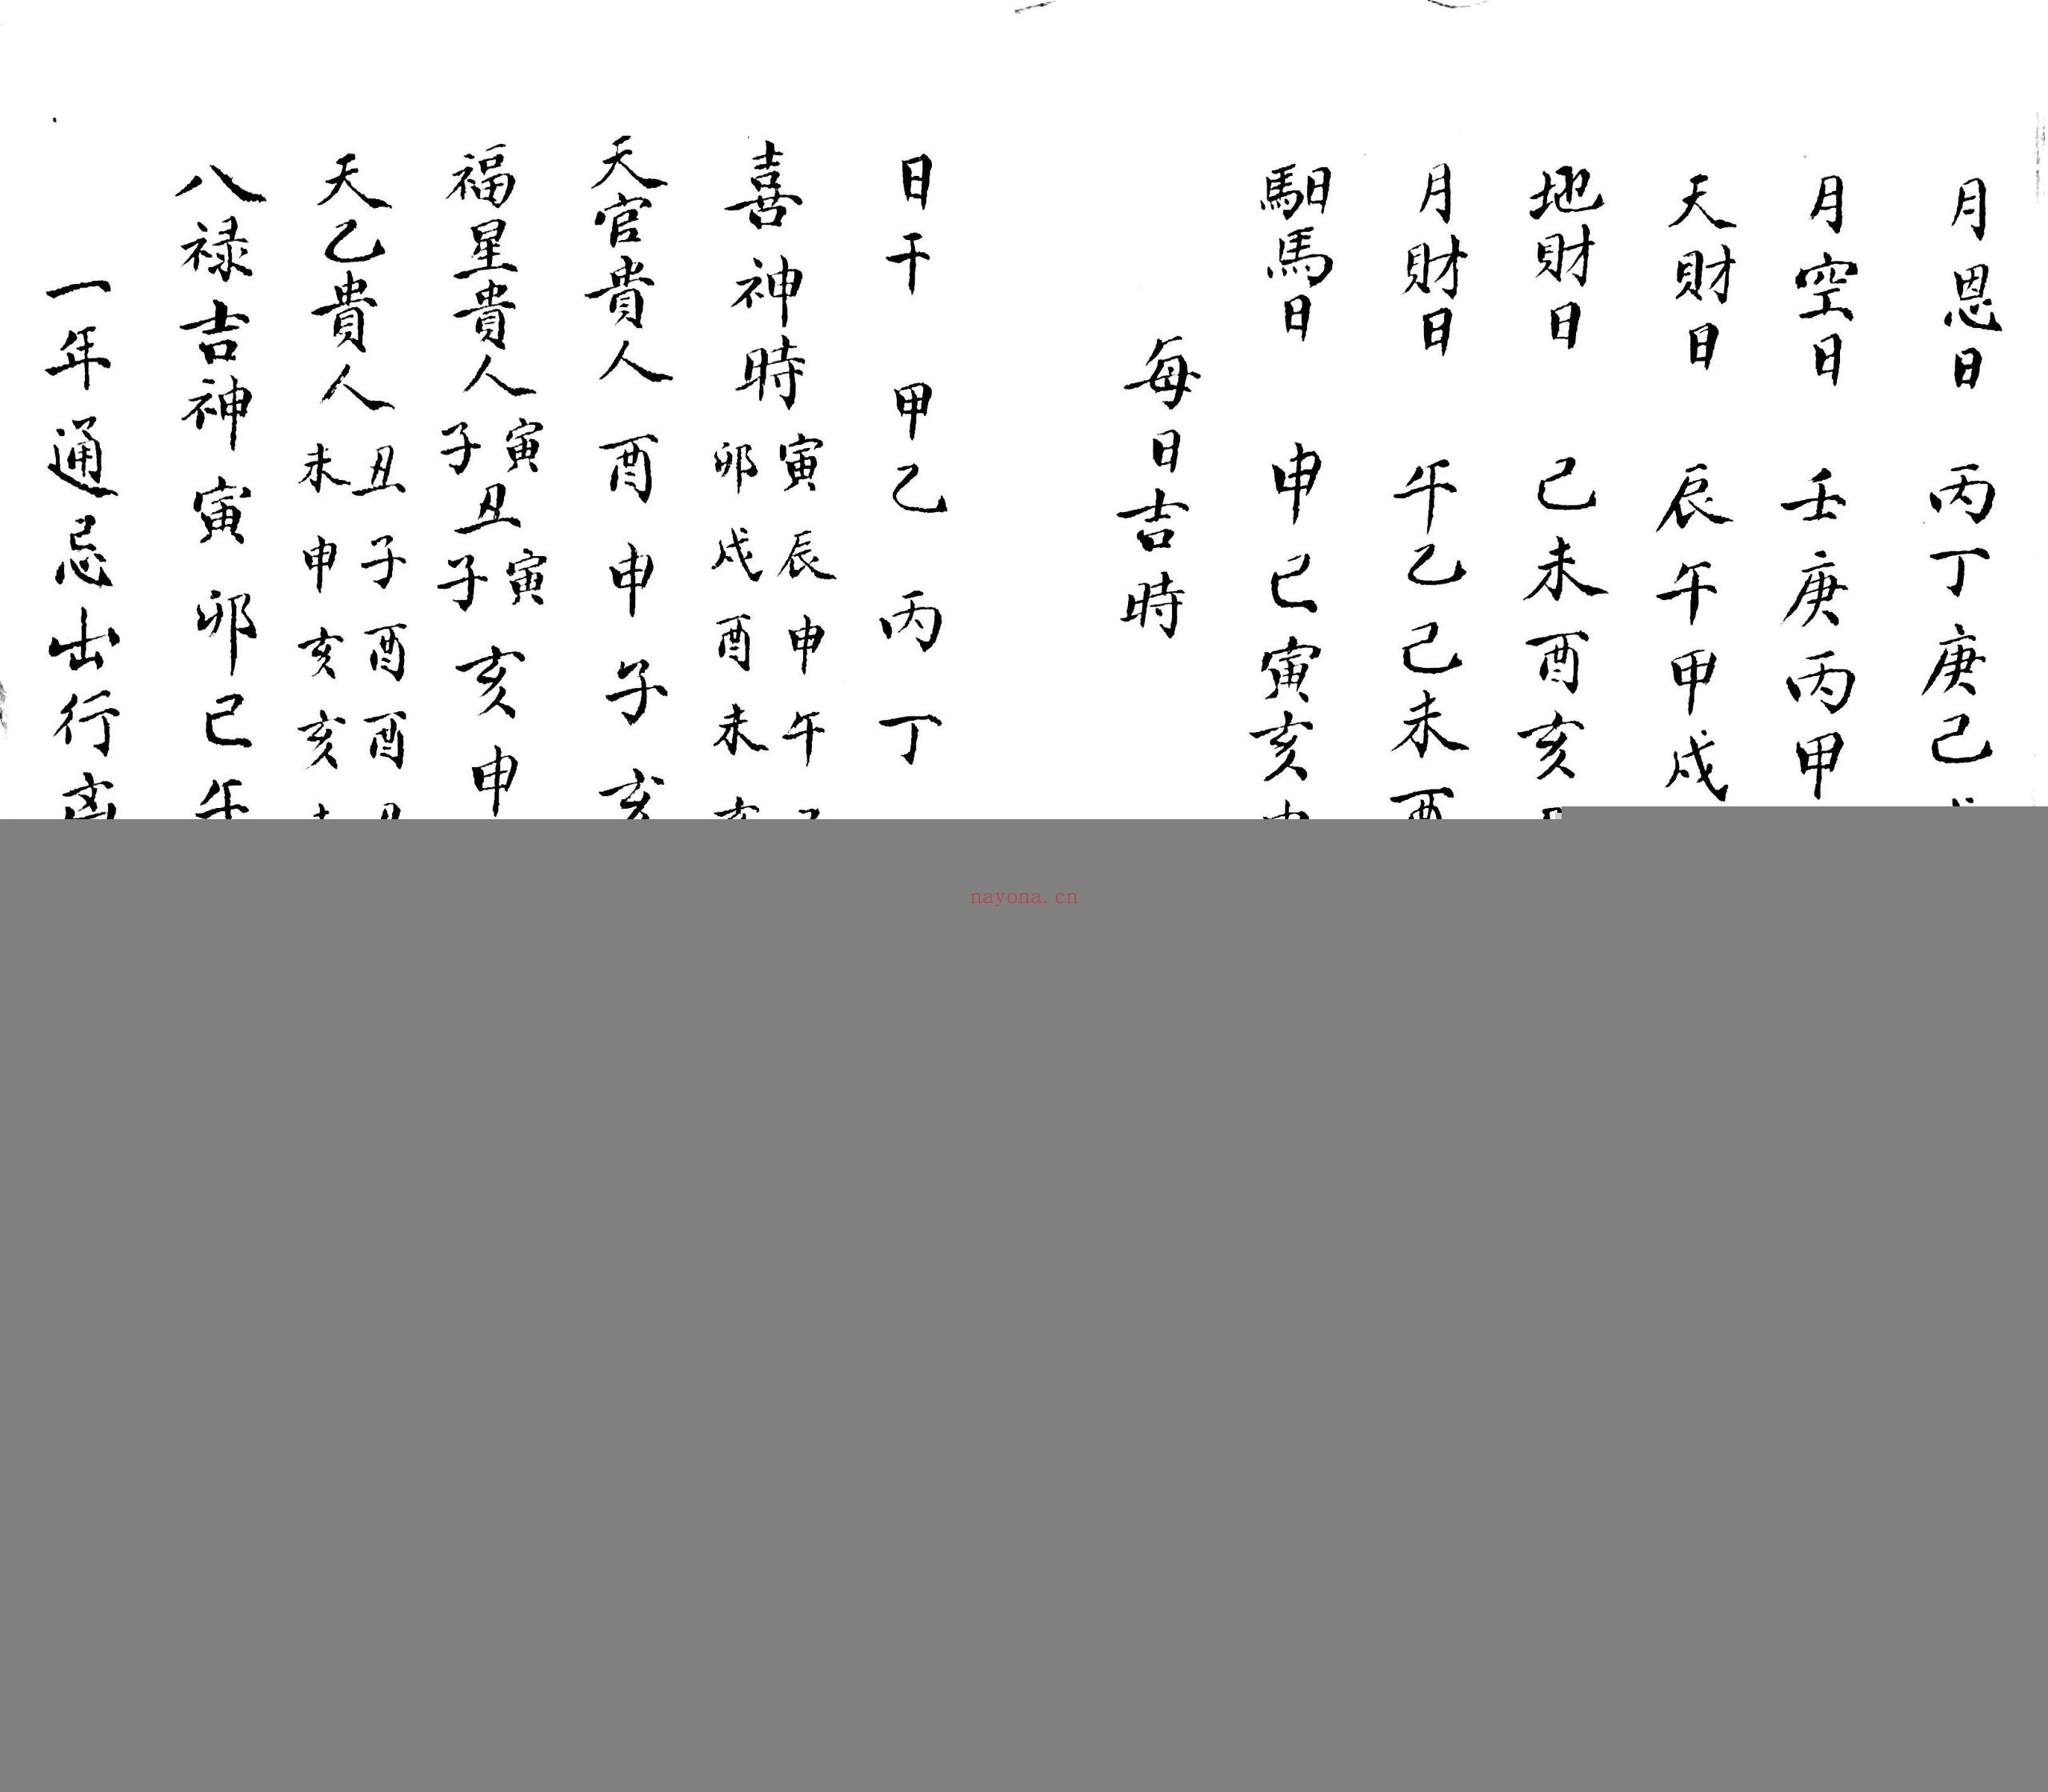 月恩日 丙丁庚己
月空日 壬庚丙甲
天財日 辰午甲戌
地財日 己未酉亥
月財日 午乙己未酉
馹馬日 申巳寅亥
每日吉時
日干 甲乙 丙丁
喜神時 寅辰申午
卯戌酉未亥
天官貴人 酉申子亥
福星貴人 寅子丑寅子亥申
天乙貴人 丑子酉酉
未申亥亥
八禄吉神 寅卯巳午
一年通忌出行
nayona.cn